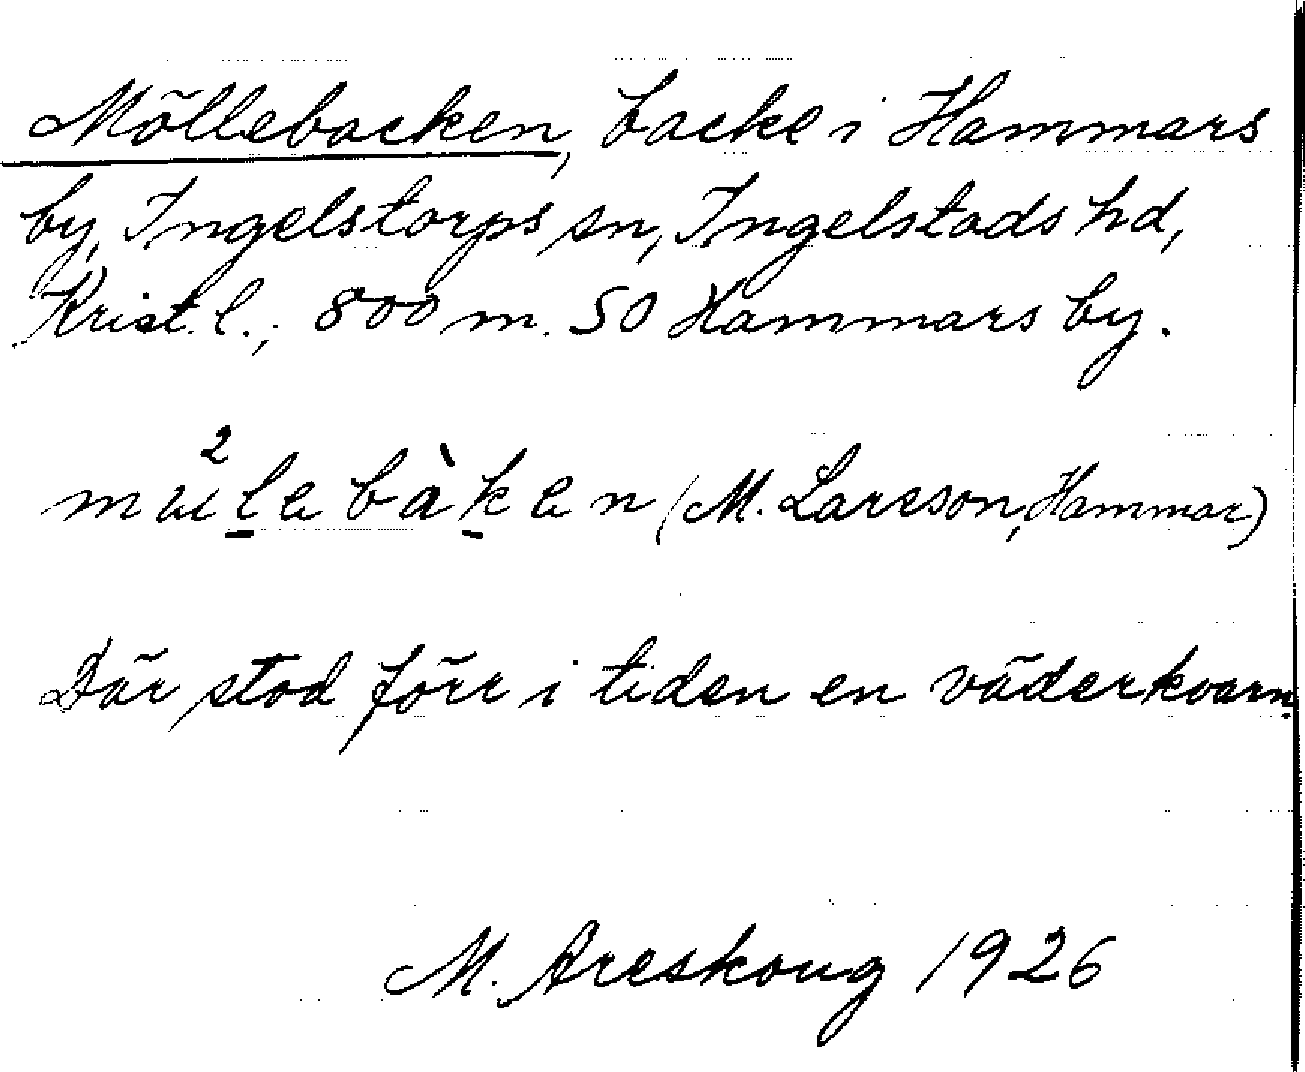 Möllebacken, backe i Hammars
by, Ingelstorps sn, Ingelstads hd,
Krist. l.; 800 m. SO Hammars by.
(M. Larsson, Hammar)
Där stod förr i tiden en väderkvarn.
M. Areskoug 1926